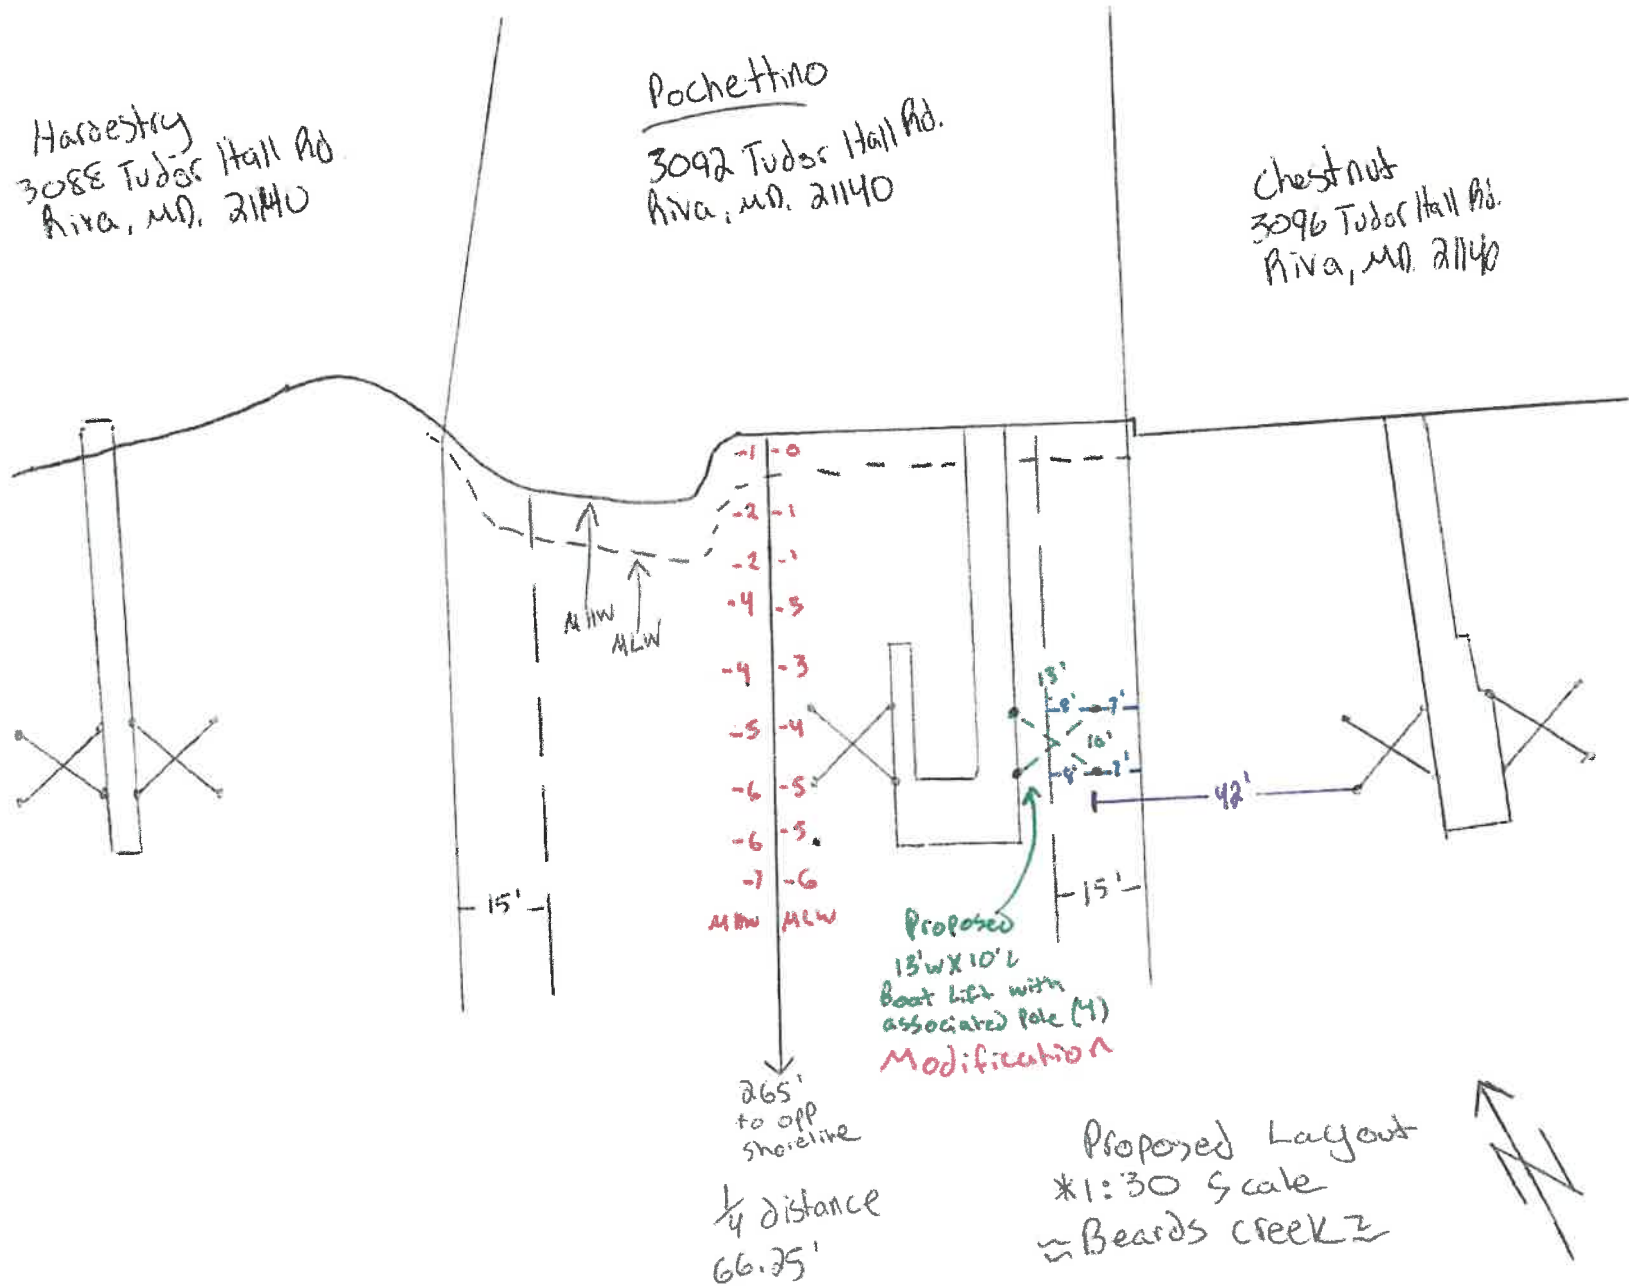 Hardestry
3088 Tudor Hall Rd
Riva, MD. 21140
Pochettino
3092 Tudor Hall Rd.
Riva, MD. 21140
Chestnut
3096 Tudor Hall Rd.
Riva, MD. 21140
-1 -0
-2 -1
-2 -1
-4 -3
-4 -3
-5 -4
-6 -5
-6 -5
-7 -6
MHW MLW
MHW
MLW
13'
8' 7'
10'
8' 7'
42'
15'
15'
Proposed
13'W X 10'L
Boat Lift with
associated Pole (4)
Modification
265'
to opp
shoreline
1/4 distance
66.25'
Proposed Layout
*1:30 Scale
≈Beards Creek≈
N